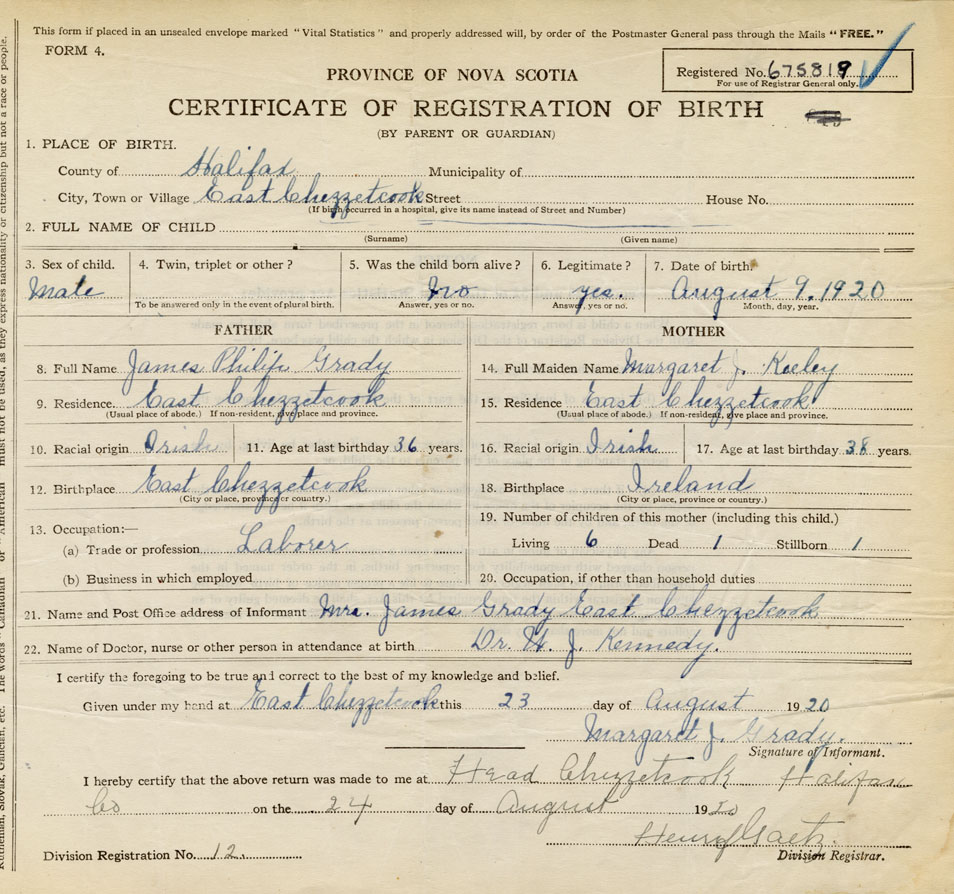 This form if placed in an unsealed envelope marked "Vital Statistics" and properly addressed will, by order of the Postmaster General pass through the Mails "FREE."
FORM 4.
Registered No. 675819
For use of Registrar General only.
PROVINCE OF NOVA SCOTIA
CERTIFICATE OF REGISTRATION OF BIRTH
(BY PARENT OR GUARDIAN)
1. PLACE OF BIRTH.
County of Halifax Municipality of
City, Town or Village East Chezzetcook Street House No.
(If birth occurred in a hospital, give its name instead of Street and Number)
2. FULL NAME OF CHILD
(Surname) (Given name)
3. Sex of child. 4. Twin, triplet or other? 5. Was the child born alive? 6. Legitimate? 7. Date of birth.
Male no yes. August 9, 1920
To be answered only in the event of plural birth. Answer, yes or no. Answer, yes or no. Month, day, year.
FATHER MOTHER
8. Full Name James Philip Grady 14. Full Maiden Name Margaret J. Keeley
9. Residence. East Chezzetcook 15. Residence East Chezzetcook
(Usual place of abode.) If non-resident, give place and province. (Usual place of abode.) If non-resident, give place and province.
10. Racial origin Irish 11. Age at last birthday 36 years. 16. Racial origin Irish 17. Age at last birthday 38 years.
12. Birthplace East Chezzetcook 18. Birthplace Ireland
(City or place, province or country.) (City or place, province or country.)
13. Occupation:— 19. Number of children of this mother (including this child.)
(a) Trade or profession Laborer Living 6 Dead 1 Stillborn 1
(b) Business in which employed 20. Occupation, if other than household duties
21. Name and Post Office address of Informant Mrs. James Grady East Chezzetcook
22. Name of Doctor, nurse or other person in attendance at birth Dr. W. J. Kennedy.
I certify the foregoing to be true and correct to the best of my knowledge and belief.
Given under my hand at East Chezzetcook this 23 day of August 1920
Margaret J. Grady.
Signature of Informant.
I hereby certify that the above return was made to me at Head Chezzetcook Halifax
Co on the 24 day of August 1920
Henry Gaetz
Division Registrar.
Division Registration No. 12.
Ruthenian, Slovak, Galician, etc. The words "Canadian" or "American" must not be used, as they express nationality or citizenship but not a race or people.